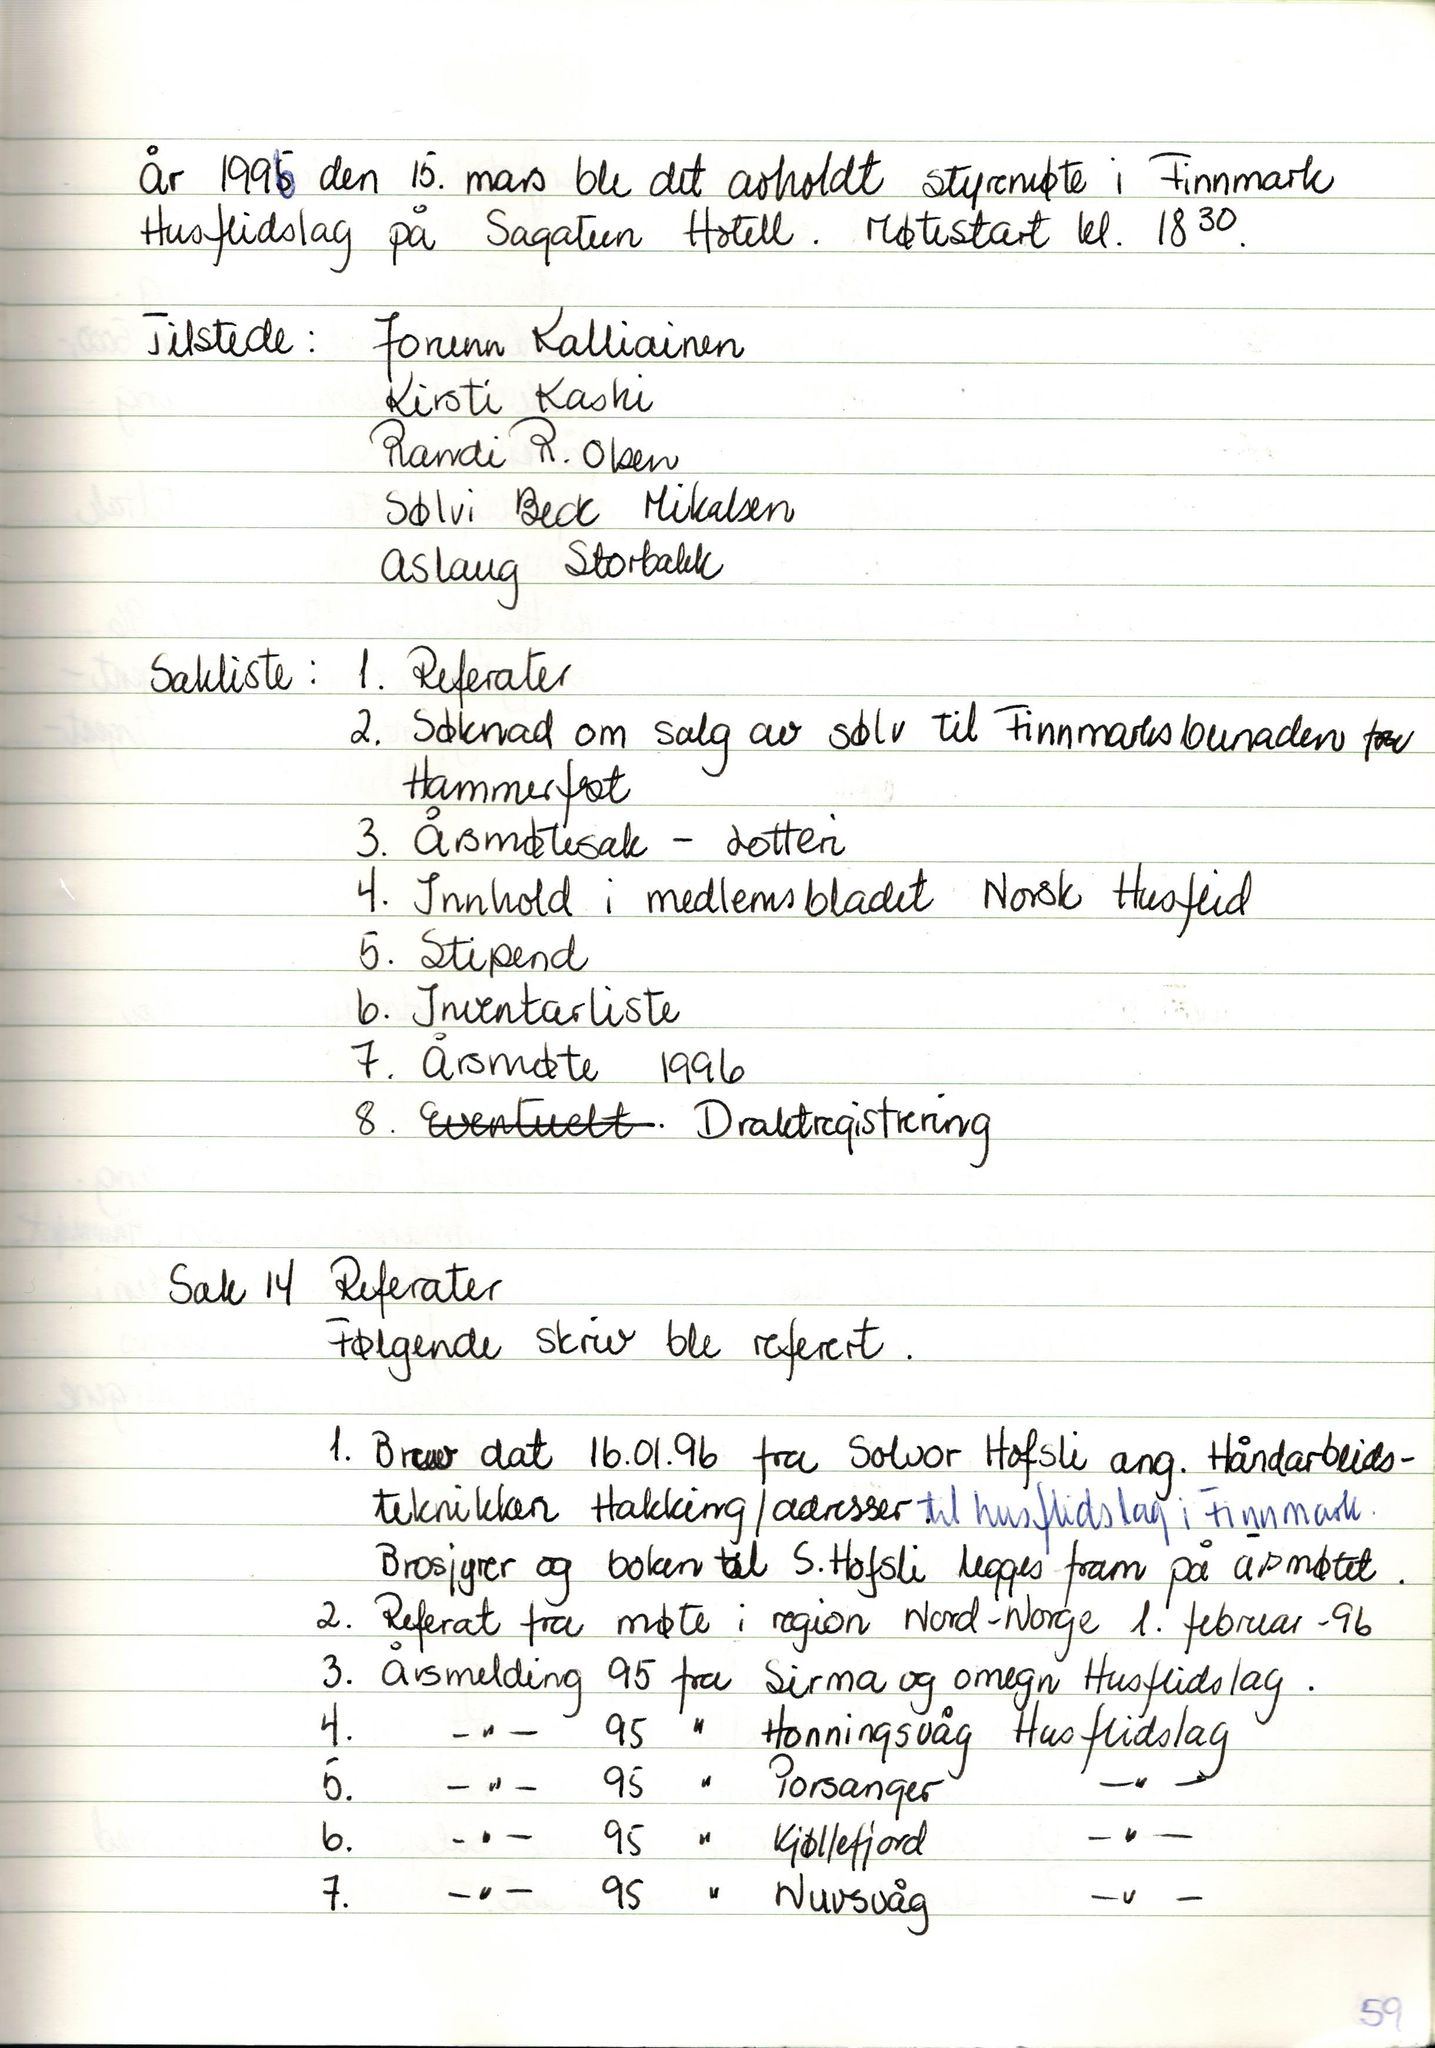 År 1996 den 15. mars ble det avholdt styremøte i Finnmark
Husflidslag på Sagatun Hotell. Møtestart kl. 18 30.
Tilstede: Jorunn Kalliainen
Kirsti Kaski
Randi R. Olsen
Sølvi Beck Mikalsen
Aslaug Storbakk
Sakliste: 1. Referater
2. Søknad om salg av sølv til Finnmarksbunaden fra
Hammerfest
3. Årsmøtesak - Lotteri
4. Innhold i medlemsbladet Norsk Husflid
5. Stipend
6. Inventarliste
7. Årsmøte 1996
8. Eventuelt. Draktregistrering
Sak 14 Referater
Følgende skriv ble referert.
1. Brev dat 16.01.96 fra Solvor Hofsli ang. Håndarbeids-
teknikken Hakking/adresser til husflidslag i Finnmark.
Brosjyrer og boken til S. Hofsli legges fram på årsmøtet.
2. Referat fra møte i region Nord-Norge 1. februar -96
3. Årsmelding 95 fra Sirma og omegn Husflidslag.
4. -"- 95 " Honningsvåg Husflidslag
5. -"- 95 " Porsanger -"-
6. -"- 95 " Kjøllefjord -"-
7. -"- 95 " Nuvsvåg -"-
59